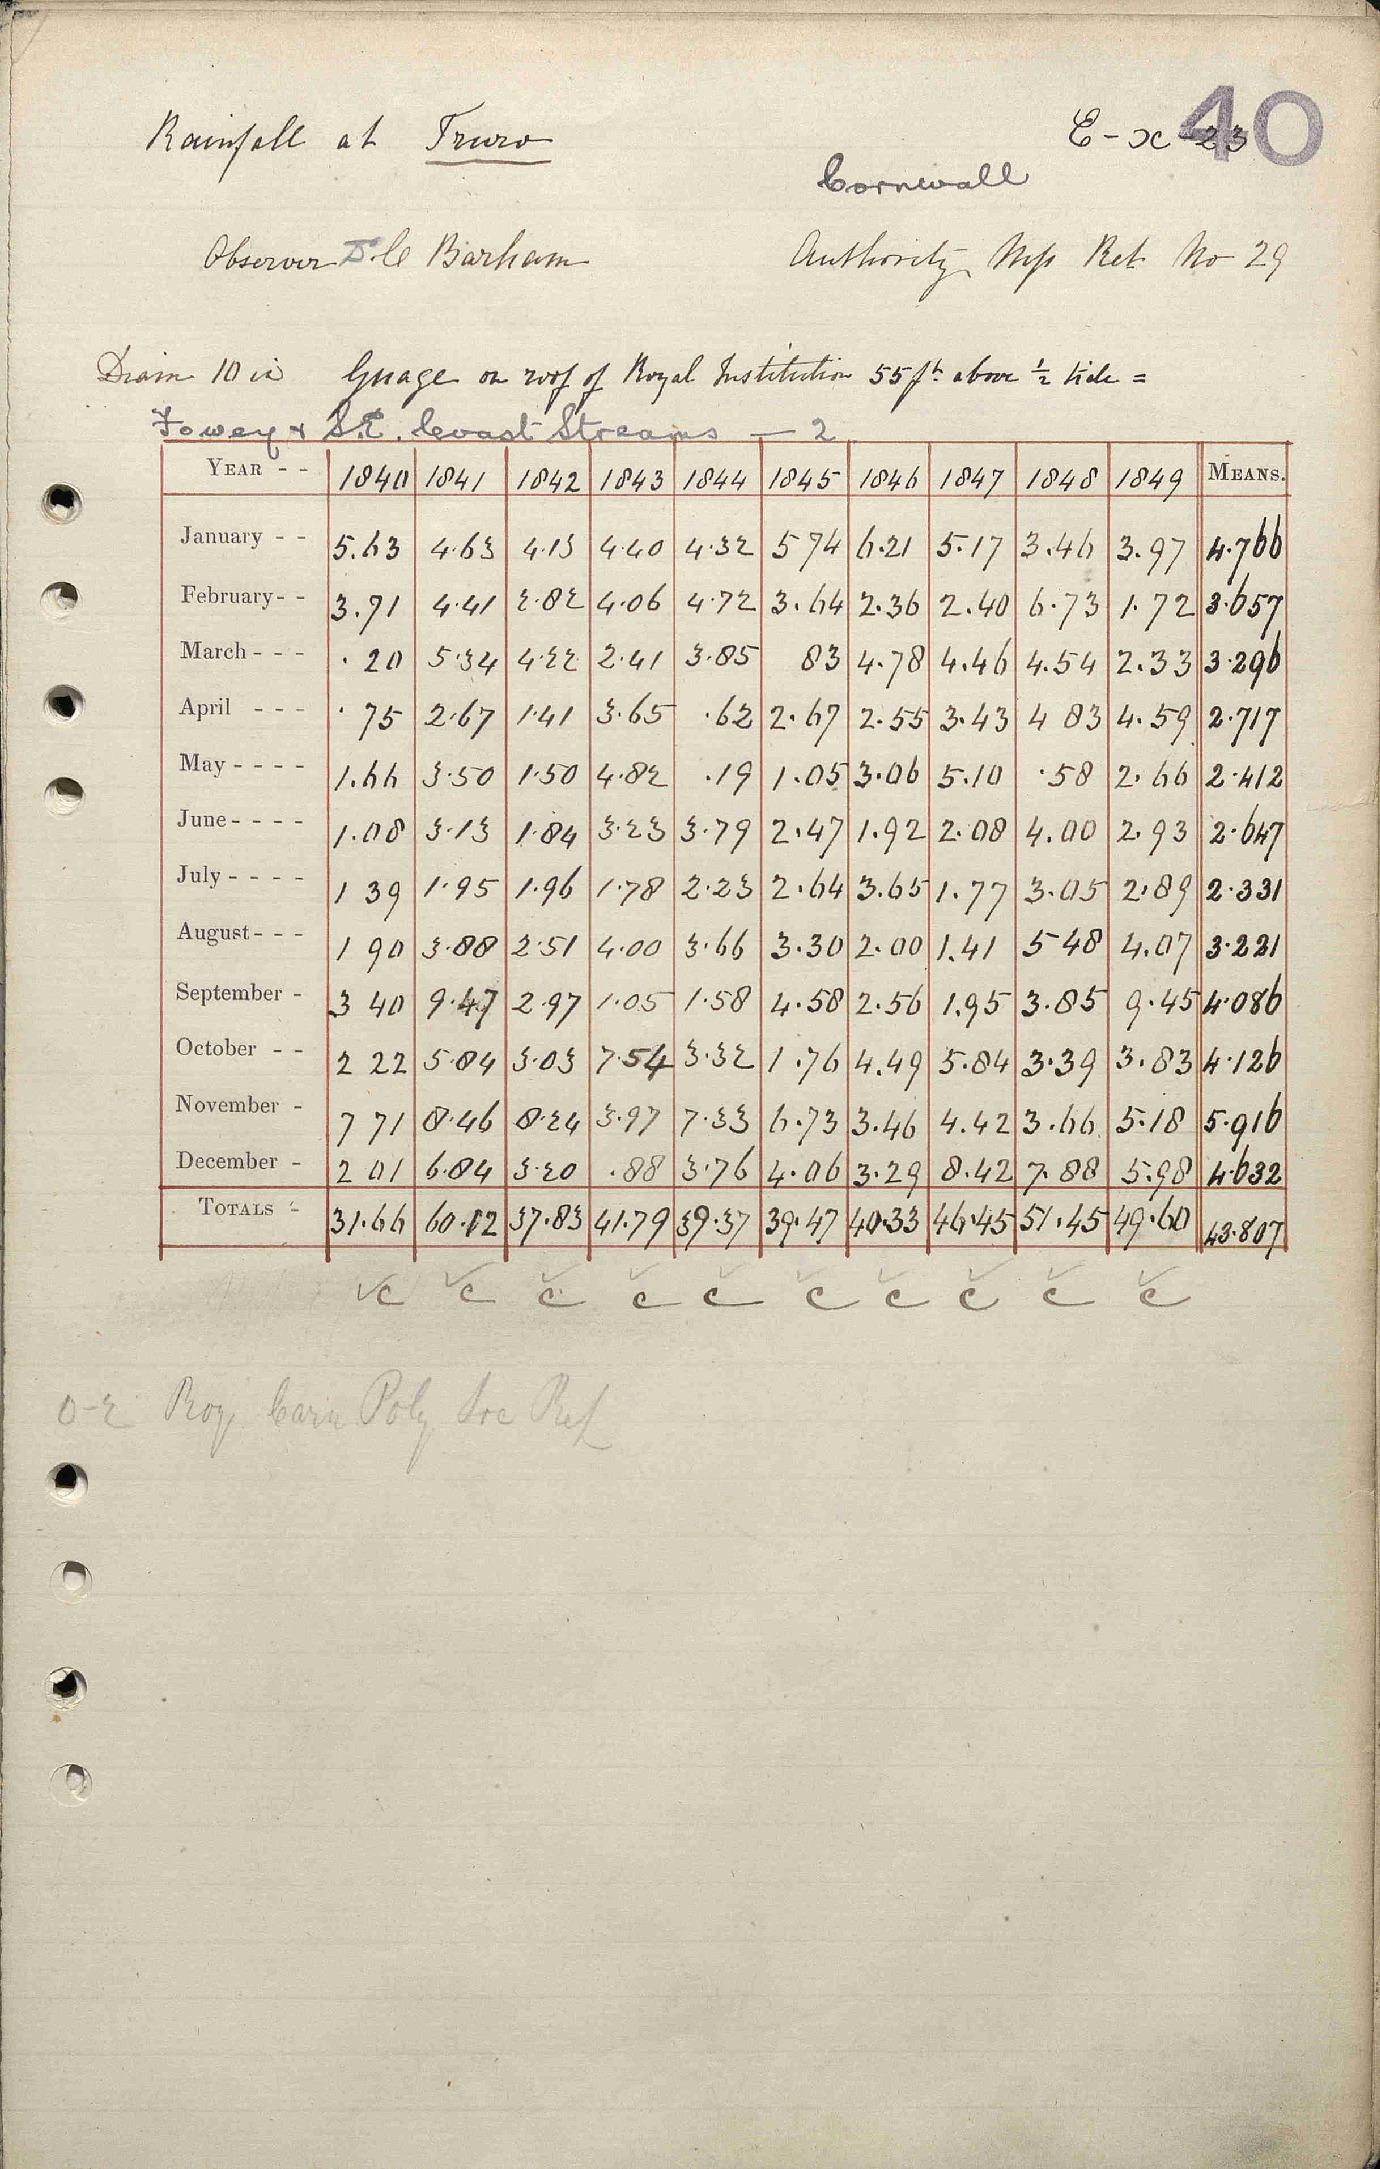 40
Rainfall at Truro E-x-23
Cornwall
Observer Dr C Barham Authority Mss Ret No 29
Diam 10 in Guage on roof of Royal Institution 55 ft above ½ tide =
Fowey & S.E. Coast Streams — 2
YEAR - - 1840 1841 1842 1843 1844 1845 1846 1847 1848 1849 MEANS.
January - - 5.63 4.63 4.13 4.40 4.32 5 74 6.21 5.17 3.46 3.97 4.766
February - - 3.71 4.41 2.82 4.06 4.72 3.64 2.36 2.40 6.73 1.72 3.657
March - - - .20 5.34 4.22 2.41 3.85 83 4.78 4.46 4.54 2.33 3.296
April - - - .75 2.67 1.41 3.65 .62 2.67 2.55 3.43 4 83 4.59 2.717
May - - - - 1.66 3.50 1.50 4.82 .19 1.05 3.06 5.10 .58 2.66 2.412
June - - - - 1.08 3.13 1.84 3.23 3.79 2.47 1.92 2.08 4.00 2.93 2.647
July - - - - 1 39 1.95 1.96 1.78 2.23 2.64 3.65 1.77 3.05 2.89 2.331
August - - - 1 90 3.88 2.51 4.00 3.66 3.30 2.00 1.41 5 48 4.07 3.221
September - 3 40 9.47 2.97 1.05 1.58 4.58 2.56 1.95 3.85 9.45 4.086
October - - 2 22 5.84 3.03 7.54 3.32 1.76 4.49 5.84 3.39 3.83 4.126
November - 7 71 8.46 8.24 3.97 7.33 6.73 3.46 4.42 3.66 5.18 5.916
December - 2 01 6.84 3.20 .88 3.76 4.06 3.29 8.42 7.88 5.98 4.632
TOTALS - 31.66 60.12 37.83 41.79 39.37 39.47 40.33 46.45 51.45 49.60 43.807
✓c ✓c ✓c ✓c ✓c ✓c ✓c ✓c ✓c ✓c
0-2 Roy Corn Poly Soc Ref